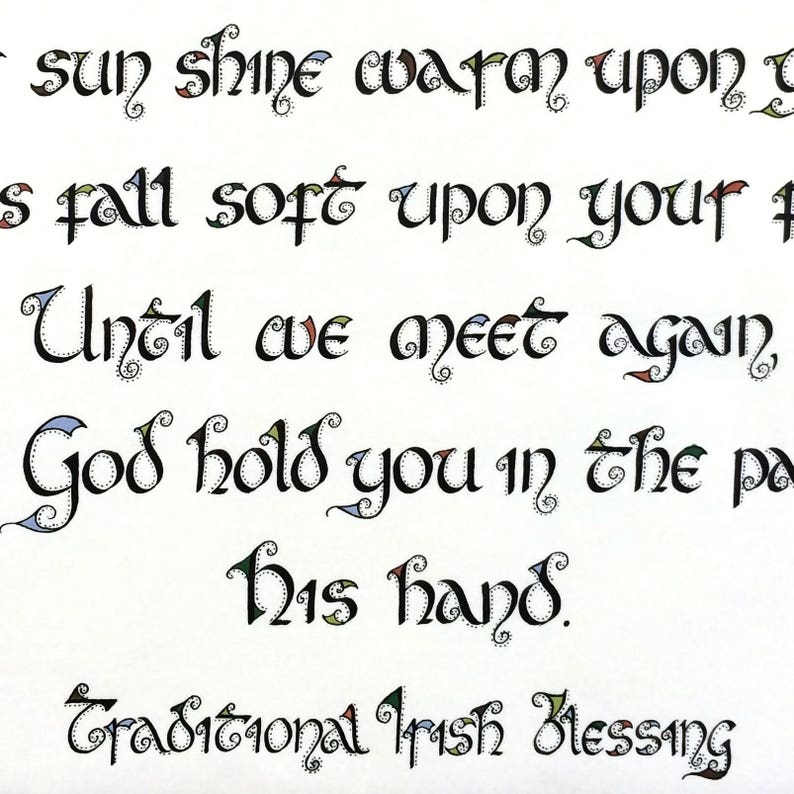 sun shine warm upon
fall soft upon your
Until we meet again,
God hold you in the
his hand.
Traditional Irish Blessing